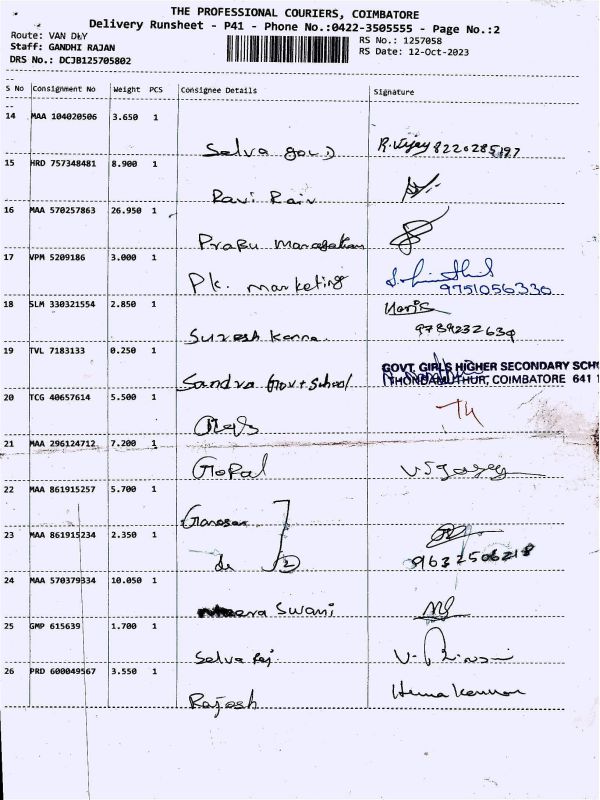 THE PROFESSIONAL COURIERS, COIMBATORE
Delivery Runsheet - P41 - Phone No.:0422-3505555 - Page No.:2
Route: VAN DLY
RS No.: 1257058
Staff: GANDHI RAJAN
RS Date: 12-Oct-2023
DRS No.: DCJB125705802
S No Consignment No Weight PCS Consignee Details Signature
14 MAA 104020506 3.650 1
Selva R.Vijay
15 HRD 757348481 8.900 1
Ravi
16 MAA 570257863 26.950 1
Prabu
17 VPM 5209186 3.000 1
Pk. marketing
9751056330
18 SLM 330321554 2.850 1
Suresh Kanna
9789232630
19 TVL 7183133 0.250 1
GOVT. GIRLS HIGHER SECONDARY SCHO
THONDAMUTHUR, COIMBATORE 641 1
Sandra Govt School
20 TCG 40657614 5.500 1
21 MAA 296124712 7.200 1
Gopal
22 MAA 861915257 5.700 1
Ganesan
23 MAA 861915234 2.350 1
do 2
24 MAA 570379334 10.050 1
Meera Swami
25 GMP 615639 1.700 1
Selva Raj
26 PRD 600049567 3.550 1
Rajesh Hema Kannan